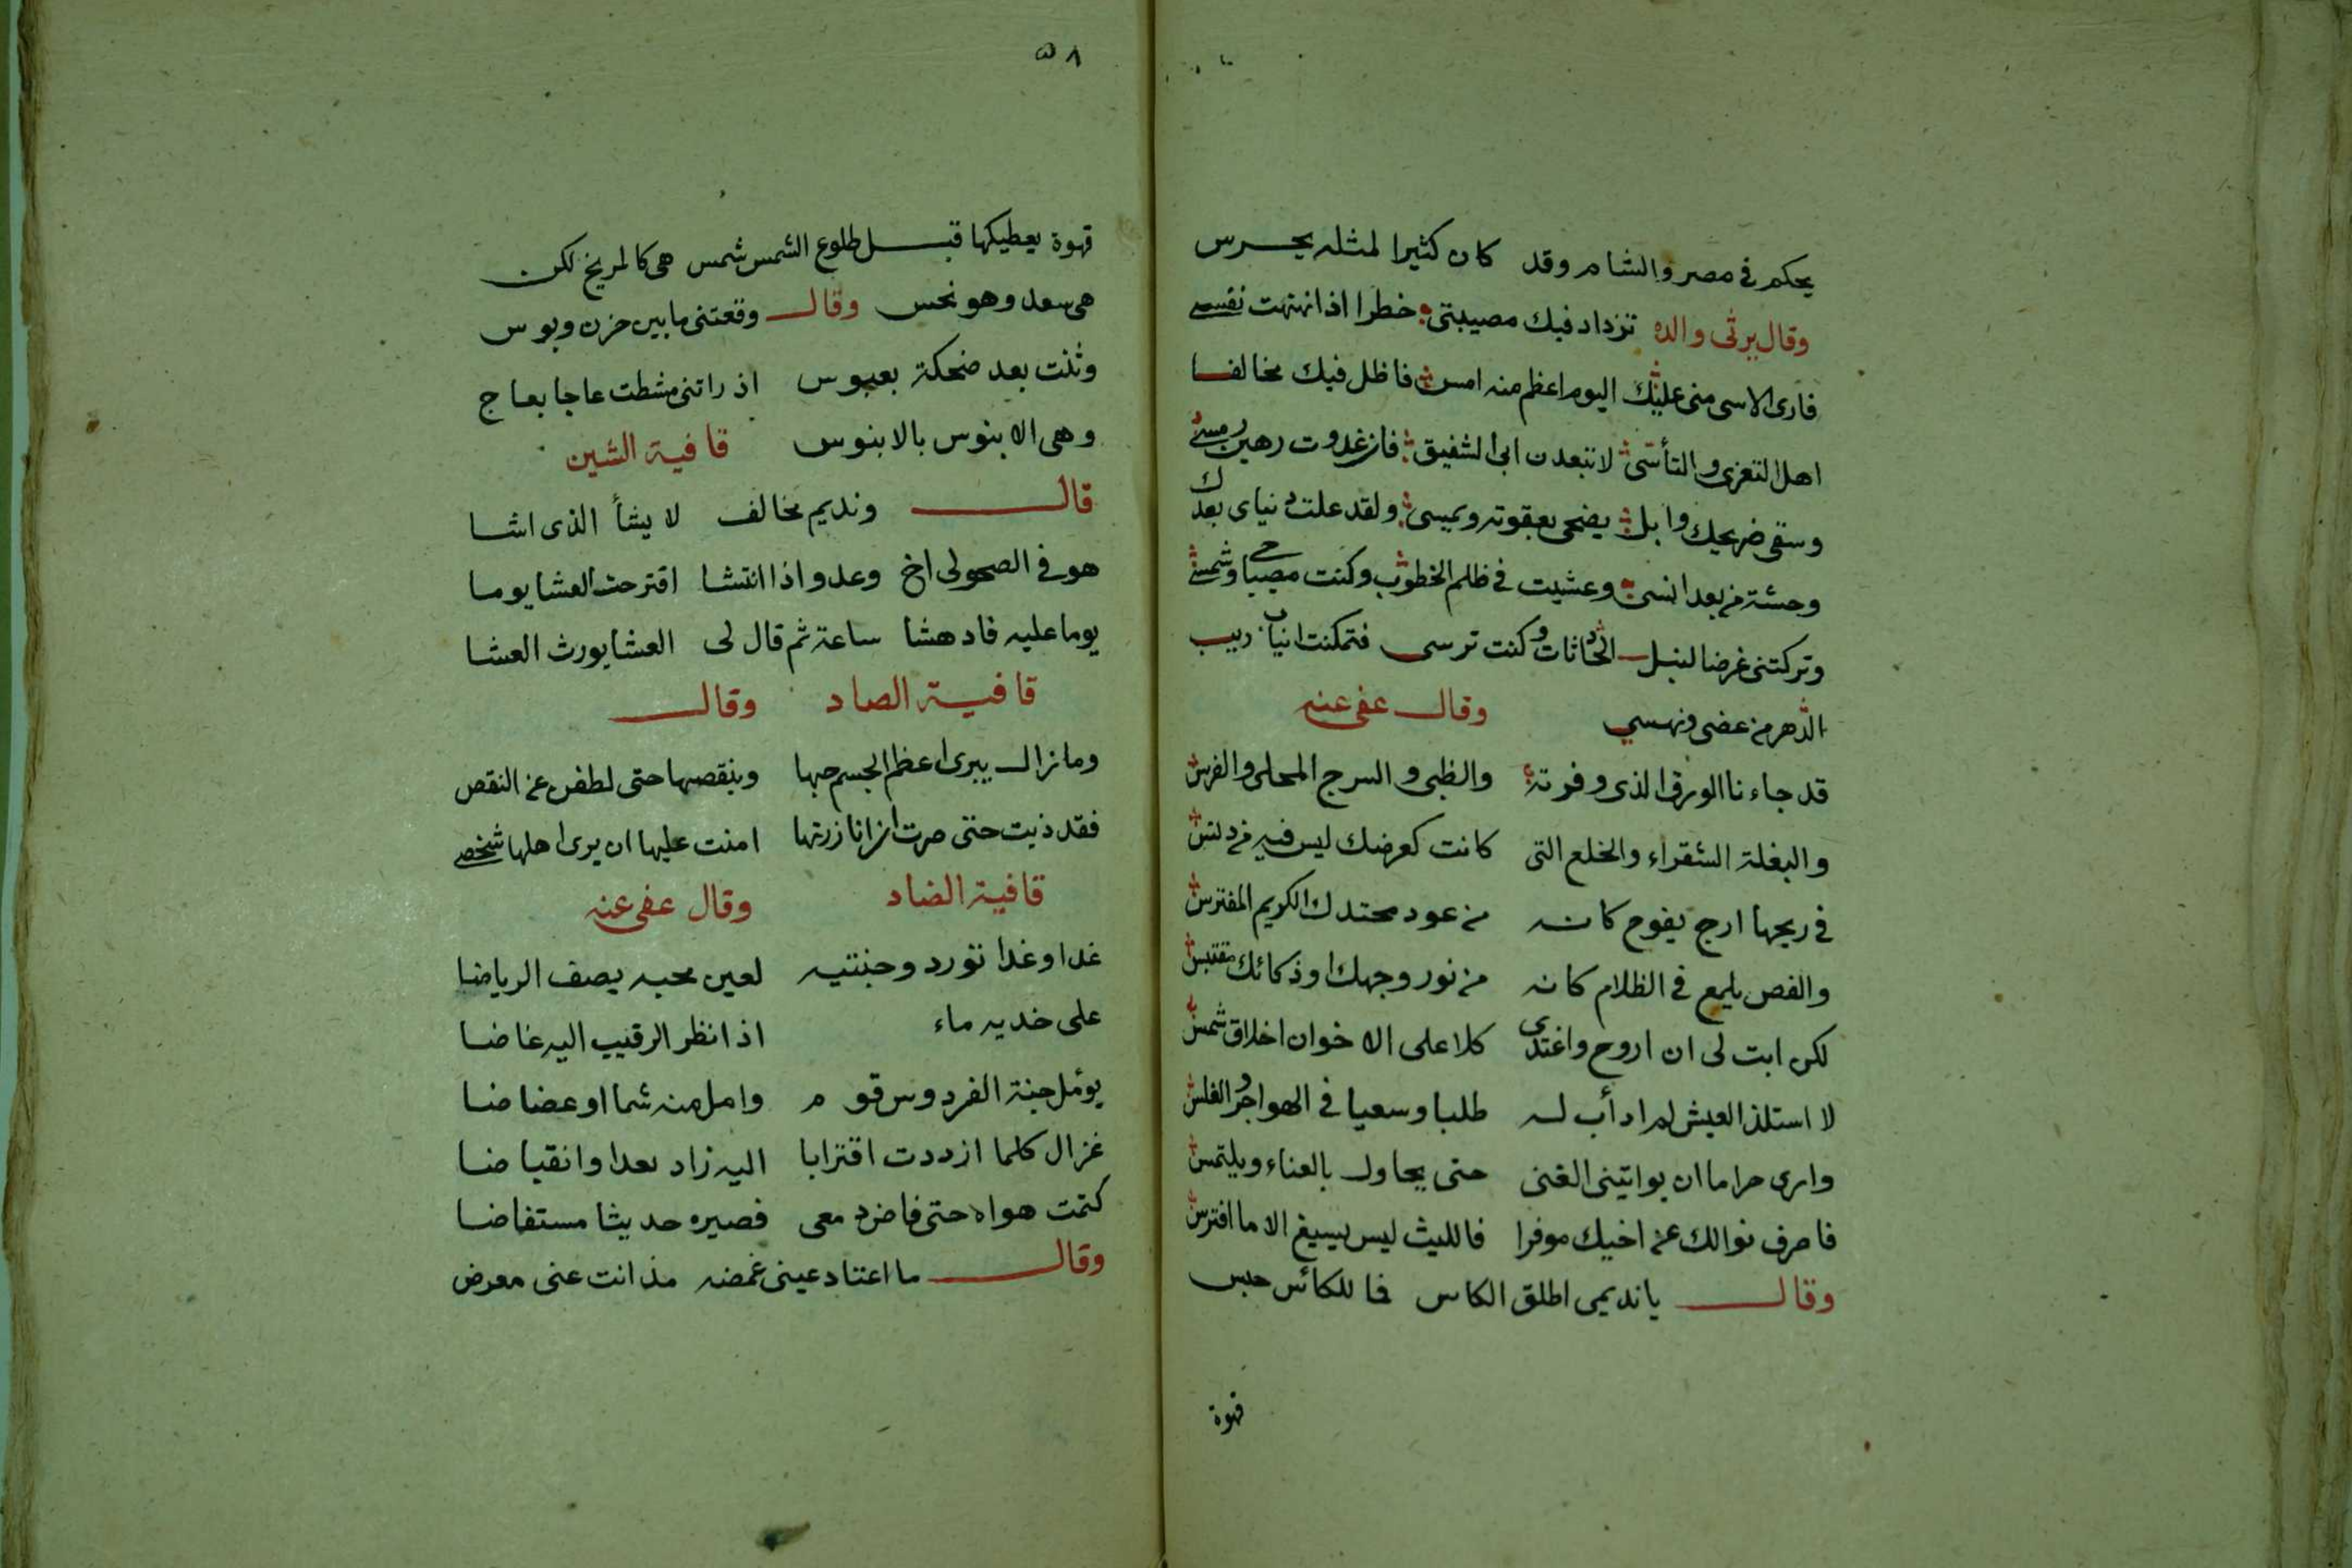 يحكم في مصر والشام وقد كان كثيرا لمثله يحرس
وقال يرثى والده تزداد فيك مصيبتى خطرا اذا انتهت نفسى
فارى الاسى منى عليك اليوم اعظم منه امس فاظل فيك مخالفا
اهل التعزى والتأسى لا تبعدن ابى الشفيق فان غدوت رهين رمس
وسقى ضريحك وابل يضحى بعقوته ويمسى ولقد علت دنياى بعدك
وحشة من بعد انسى وعشيت في ظلم الخطوب وكنت مصباحى وشمسى
وتركتنى غرضا لنبل الحادثات وكنت ترسى فتمكنت انياب ريب
الدهر من عضى ونهسي وقال عفى عنه
قد جاءنا الورق الذى وفرته والظبى والسرج المحلى والفرس
والبغلة الشقراء والخلع التى كانت كعرضك ليس فيه من دنس
في ريحها ارج يفوح كانه من عود محتدك الكريم المفترس
والفص يلمع في الظلام كانه من نور وجهك او ذكائك مقتبس
لكن ابت لى ان اروح واغتدى كلا على الاخوان اخلاق شمس
لا استلذ العيش لم ادأب له طلبا وسعيا في الهواجر والغلس
وارى حراما ان يواتينى الغنى حتى يحاول بالعناء ويلتمس
فاصرف نوالك عن اخيك موفرا فالليث ليس يسيغ الا ما افترس
وقال يا نديمى اطلق الكاس فما للكائس حبس
قهوة
٥٨
قهوة يعطيكها قبل طلوع الشمس شمس هى كالمريخ لكن
هى سعد وهو نحس وقال وقعتنى مابين حزن وبوس
وثنت بعد ضحكة بعبوس اذ راتنى مشطت عاجا بعاج
وهى الابنوس بالابنوس قافية الشين
قال ونديم مخالف لا يشأ الذى اشا
هو في الصحو لى اخ وعدو اذا انتشا اقترحت العشا يوما
يوما عليه فادهشا ساعة ثم قال لى العشا يورث العشا
قافية الصاد وقال
ومازال يبرى اعظم الجسم حبها وينقصها حتى لطفن عن النقص
فقد ذبت حتى صرت ان انا زرتها امنت عليها ان يرى اهلها شخصى
قافية الضاد وقال عفى عنه
غدا وغدا تورد وجنتيه لعين محبه يصف الرياضا
على خديه ماء اذا نظر الرقيب اليه غاضا
يؤمل جنة الفردوس قوم وامل منه شما او عضاضا
غزال كلما ازددت اقترابا اليه زاد بعدا وانقباضا
كتمت هواه حتى فاض دمعى فصيره حديثا مستفاضا
وقال ما اعتاد عينى غمضه مذ انت عنى معرض